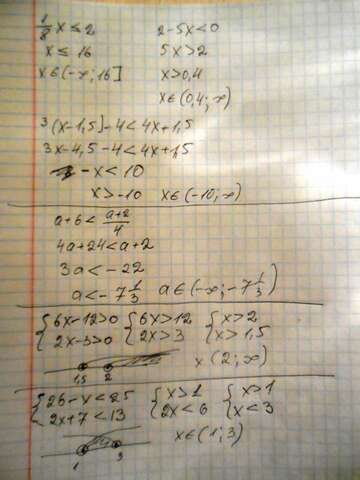 1/8 x ≤ 2
x ≤ 16
x∈(-∞; 16]
2-5x<0
5x>2
x>0,4
x∈(0,4; ∞)
3(x-1,5)-4<4x+1,5
3x-4,5-4<4x+1,5
-x<10
x>-10 x∈(-10; ∞)
a+6< (a+2)/4
4a+24<a+2
3a<-22
a<-7 1/3 a∈(-∞; -7 1/3)
{6x-12>0 {6x>12 {x>2
{2x-3>0 {2x>3 {x>1,5
1,5 2 x(2; ∞)
{26-x<25 {x>1 {x>1
{2x+7<13 {2x<6 {x<3
1 3 x∈(1; 3)